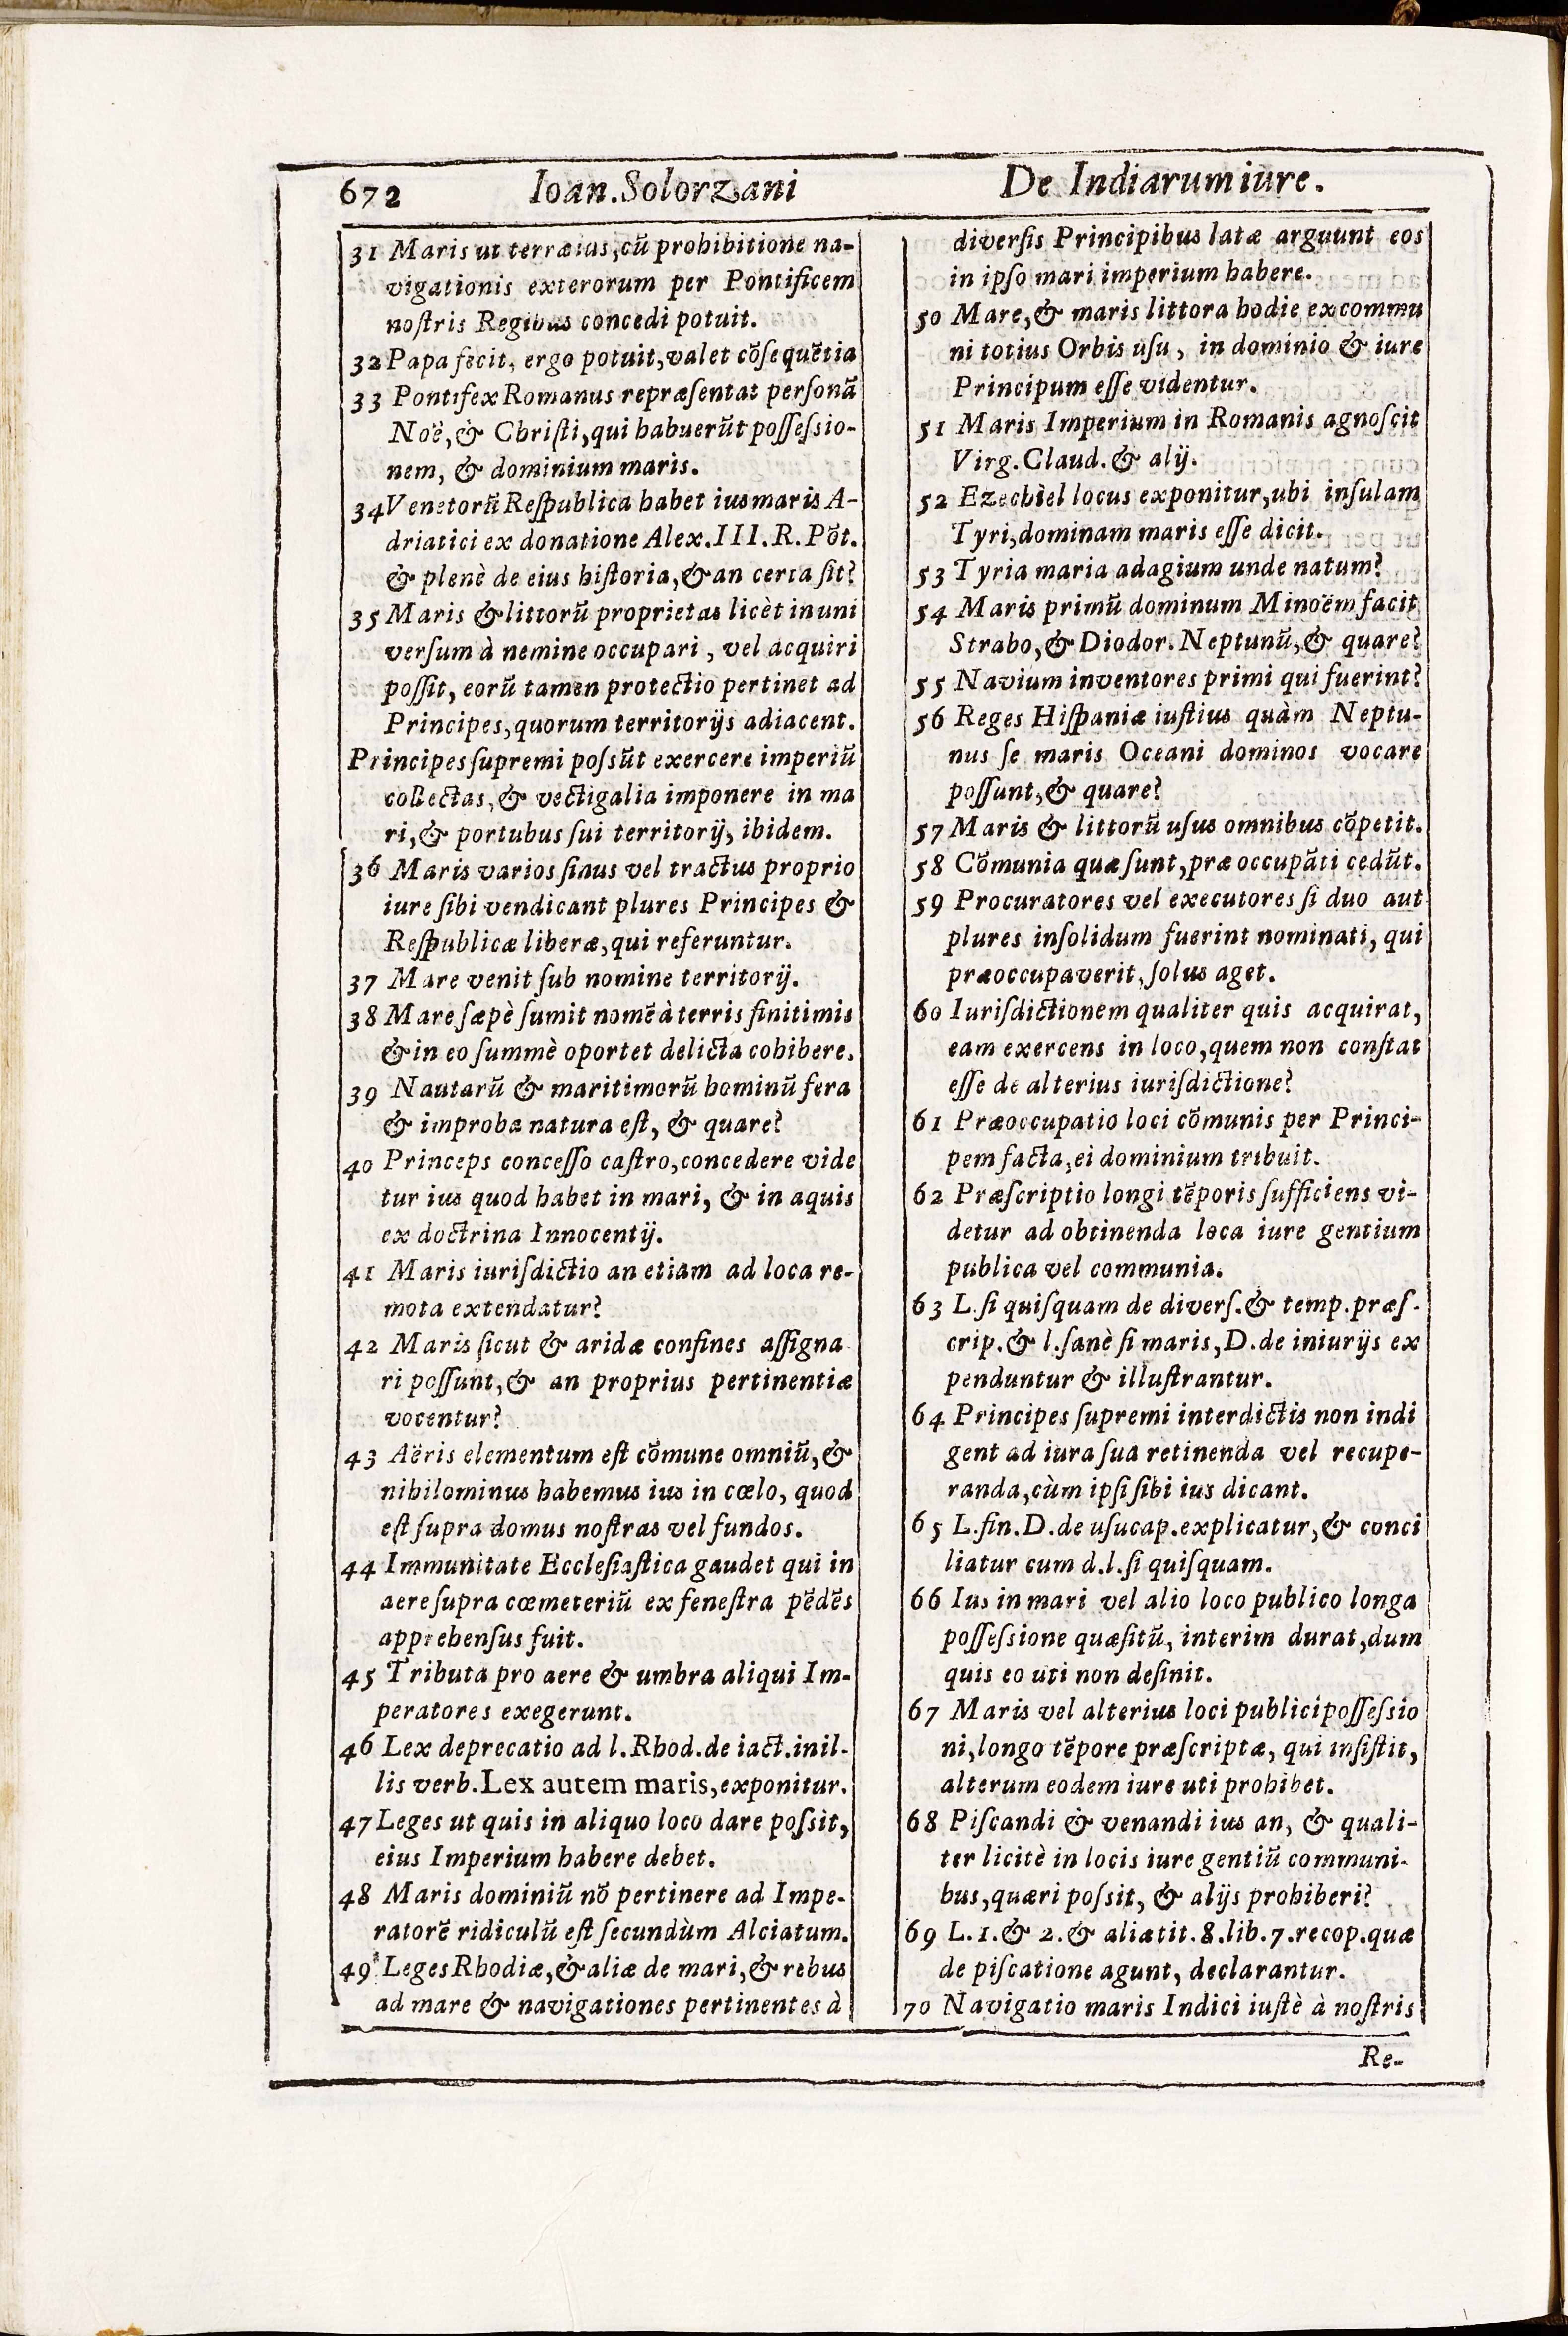 672 Ioan.Solorzani De Indiarum iure.
31 Maris ut terræ ius, cũ prohibitione na-
vigationis exterorum per Pontificem
noſtris Regibus concedi potuit.
32 Papa fecit, ergo potuit, valet cõſequẽtia
33 Pontifex Romanus repræſentat perſonã
Noë, & Chriſti, qui habuerũt poſſeſsio-
nem, & dominium maris.
34 Venetorũ Reſpublica habet ius maris A-
driatici ex donatione Alex.III.R.Põt.
& plenè de eius hiſtoria, & an certa ſit?
35 Maris & littorũ proprietas licèt in uni
verſum à nemine occupari, vel acquiri
poſſit, eorũ tamen protectio pertinet ad
Principes, quorum territorijs adiacent.
Principes ſupremi poſsũt exercere imperiũ
collectas, & vectigalia imponere in ma
ri, & portubus ſui territorij, ibidem.
36 Maris varios ſinus vel tractus proprio
iure ſibi vendicant plures Principes &
Reſpublicæ liberæ, qui referuntur.
37 Mare venit ſub nomine territorij.
38 Mare ſæpè ſumit nomẽ à terris finitimis
& in eo ſummè oportet delicta cohibere.
39 Nautarũ & maritimorũ hominũ fera
& improba natura eſt, & quare?
40 Princeps conceſſo caſtro, concedere vide
tur ius quod habet in mari, & in aquis
ex doctrina Innocentij.
41 Maris iuriſdictio an etiam ad loca re-
mota extendatur?
42 Maris ſicut & aridæ confines aſſigna
ri poſſunt, & an proprius pertinentiæ
vocentur?
43 Aëris elementum eſt cõmune omniũ, &
nihilominus habemus ius in cœlo, quod
eſt ſupra domus noſtras vel fundos.
44 Immunitate Eccleſiaſtica gaudet qui in
aere ſupra cœmeteriũ ex feneſtra pẽdẽs
apprehenſus fuit.
45 Tributa pro aere & umbra aliqui Im-
peratores exegerunt.
46 Lex deprecatio ad l.Rhod.de iact.in il-
lis verb.Lex autem maris, exponitur.
47 Leges ut quis in aliquo loco dare poſsit,
eius Imperium habere debet.
48 Maris dominiũ nõ pertinere ad Impe-
ratorẽ ridiculũ eſt ſecundùm Alciatum.
49 Leges Rhodiæ, & aliæ de mari, & rebus
ad mare & navigationes pertinentes à
diverſis Principibus latæ arguunt eos
in ipſo mari imperium habere.
50 Mare, & maris littora hodie ex commu
ni totius Orbis uſu, in dominio & iure
Principum eſſe videntur.
51 Maris Imperium in Romanis agnoſcit
Virg.Claud. & alij.
52 Ezechiel locus exponitur, ubi inſulam
Tyri, dominam maris eſſe dicit.
53 Tyria maria adagium unde natum?
54 Maris primũ dominum Minoëm facit
Strabo, & Diodor. Neptunũ, & quare?
55 Navium inventores primi qui fuerint?
56 Reges Hiſpaniæ iuſtius quàm Neptu-
nus ſe maris Oceani dominos vocare
poſſunt, & quare?
57 Maris & littorũ uſus omnibus cõpetit.
58 Cõmunia quæ ſunt, præoccupãti cedũt.
59 Procuratores vel executores ſi duo aut
plures inſolidum fuerint nominati, qui
præoccupaverit, ſolus aget.
60 Iuriſdictionem qualiter quis acquirat,
eam exercens in loco, quem non conſtat
eſſe de alterius iuriſdictione?
61 Præoccupatio loci cõmunis per Princi-
pem facta, ei dominium tribuit.
62 Præſcriptio longi tẽporis ſufficiens vi-
detur ad obtinenda loca iure gentium
publica vel communia.
63 L.ſi quiſquam de diverſ. & temp.præſ-
crip. & l.ſanè ſi maris, D.de iniurijs ex
penduntur & illuſtrantur.
64 Principes ſupremi interdictis non indi
gent ad iura ſua retinenda vel recupe-
randa, cùm ipſi ſibi ius dicant.
65 L.fin.D.de uſucap.explicatur, & conci
liatur cum d.l.ſi quiſquam.
66 Ius in mari vel alio loco publico longa
poſſeſsione quæſitũ, interim durat, dum
quis eo uti non deſinit.
67 Maris vel alterius loci publici poſſeſsio
ni, longo tẽpore præſcriptæ, qui inſiſtit,
alterum eodem iure uti prohibet.
68 Piſcandi & venandi ius an, & quali-
ter licitè in locis iure gentiũ communi-
bus, quæri poſsit, & alijs prohiberi?
69 L.1. & 2. & alia tit.8.lib.7.recop.quæ
de piſcatione agunt, declarantur.
70 Navigatio maris Indici iuſtè à noſtris
Re-